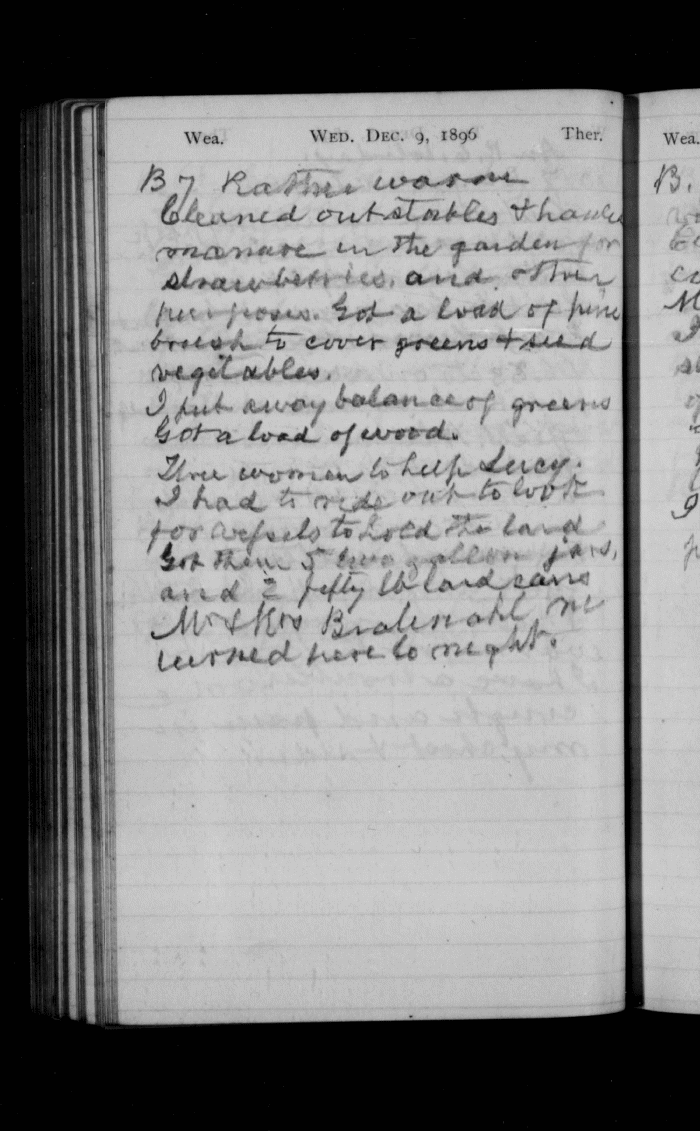 Wea. WED. DEC. 9, 1896 Ther.
B 7 Rather warm
Cleaned out stables & hauled
manure in the garden for
strawberries, and other
purposes. Got a load of pine
brush to cover greens & seed
vegitables.
I put away balance of greens
Got a load of wood.
Three women to help Lucy.
I had to ride out to look
for vessels to hold the lard
Got them 5 two gallon jars,
and 2 fifty lb lard cans
Mr & Mrs
turned here to night.
Wea.
B.